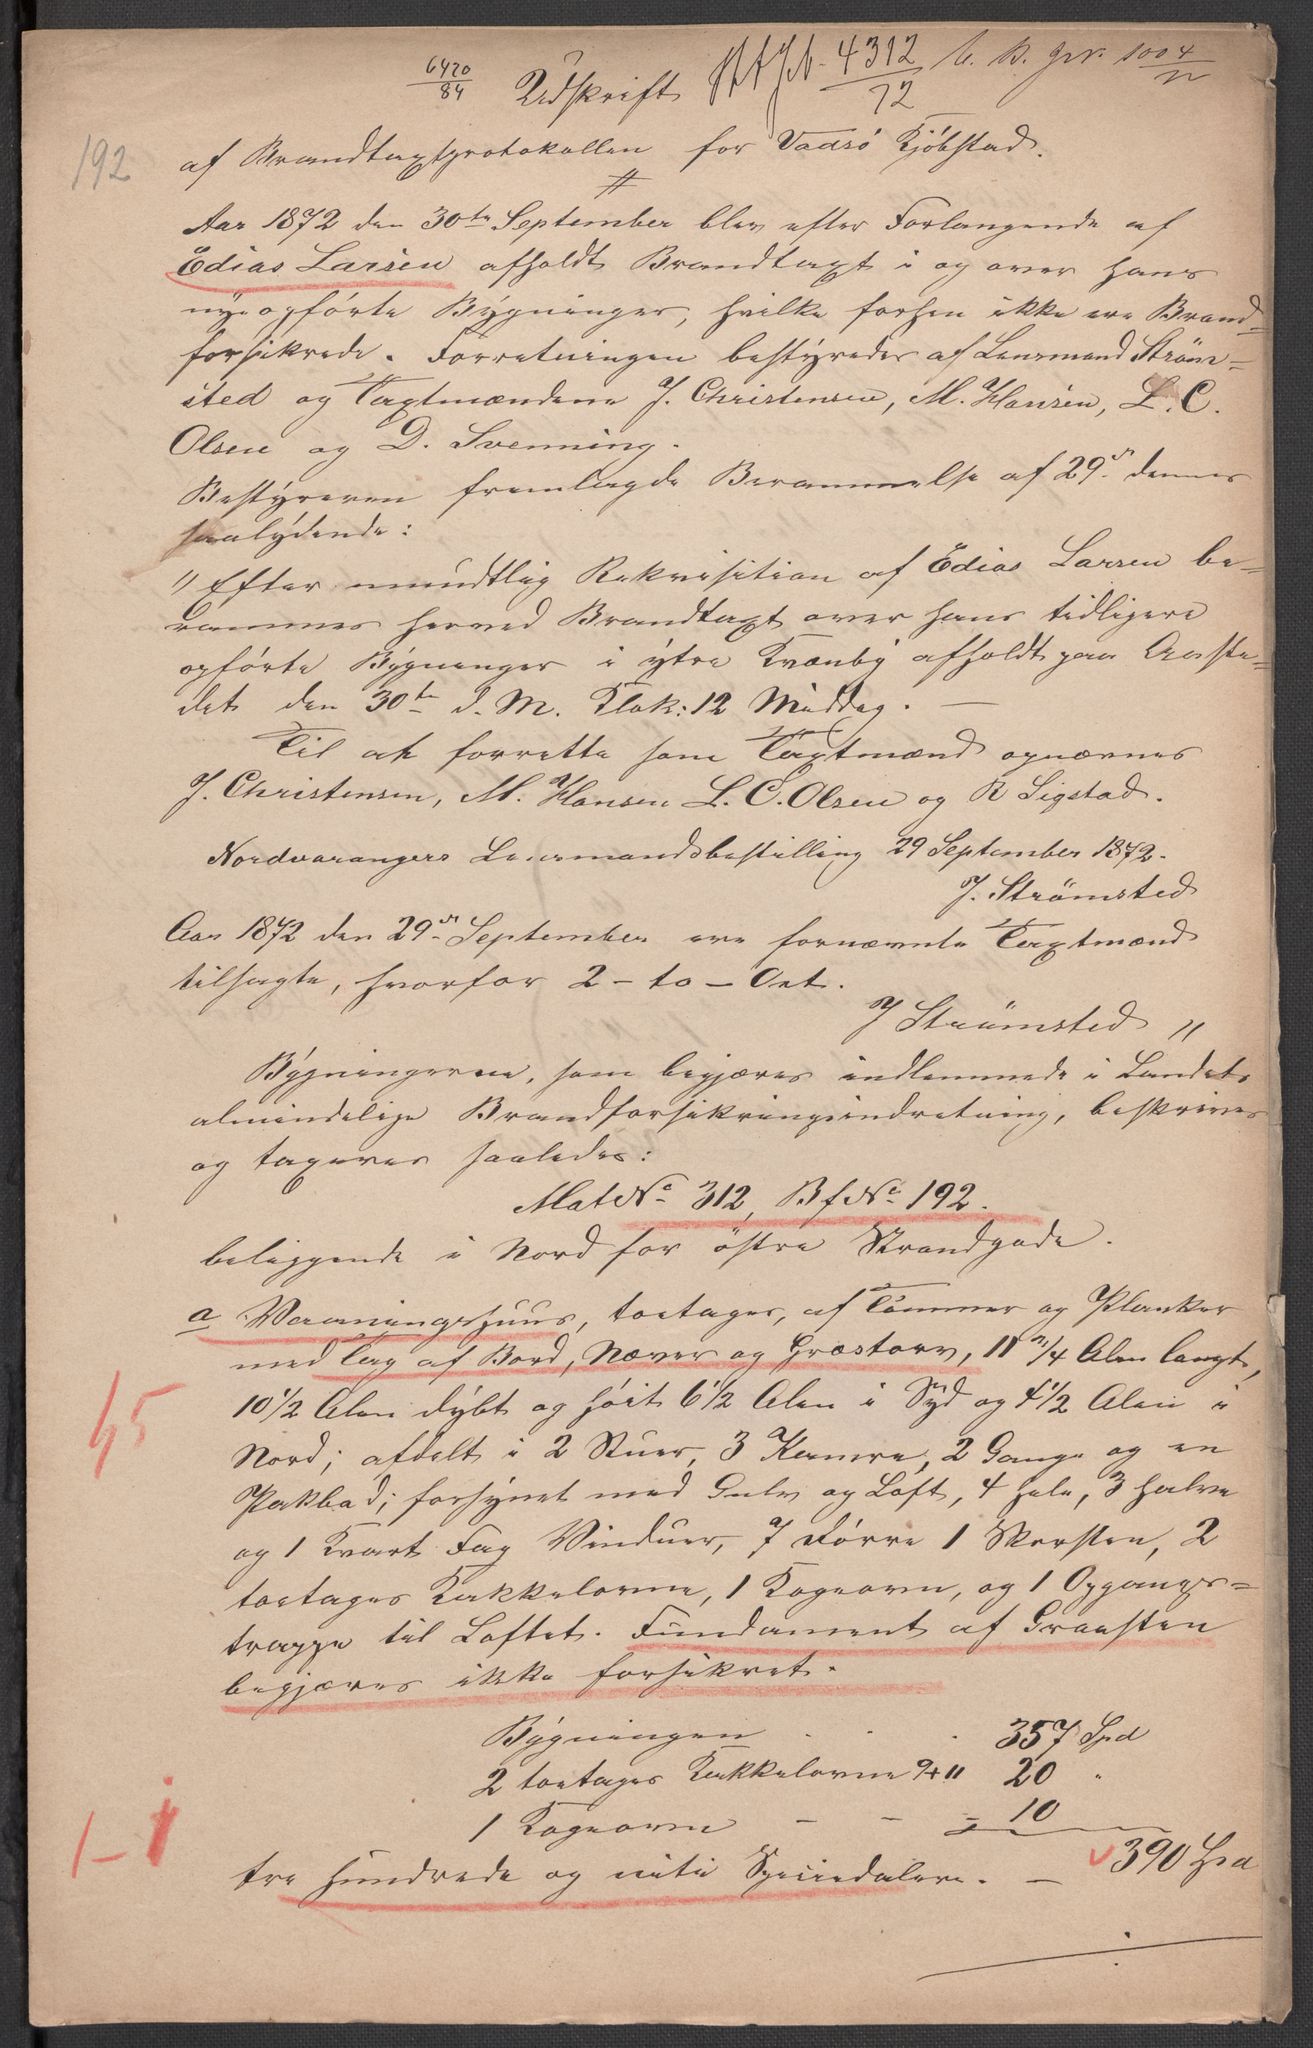 6420/84 Udskrift 4312/72 b. B. 1004/72
192
af Brandtaxtprotokollen for Vadsö Kjöbstad.
Aar 1872 den 30te September blev efter Forlangende af
Edias Larsen afholdt Brandtaxt i og over hans
nye opførte Bygninger, hvilke forhen ikke ere Brand-
forsikrede. Forretningen bestyredes af Lensmand Ström-
sted og Taxtmændene J. Christensen, M. Hansen, L. C.
Olsen og D. Svenning.
Bestyreren fremlagde Berammelse af 29de dennes
saalydende:
"Efter mundtlig Rekvisition af Edias Larsen be-
rammes herved Brandtaxt over hans tidligere
opførte Bygninger i ytre Kvænby afholdt paa Aaste-
det den 30te d. M. Klok: 12 Middag. —
Til at forrette som Taxtmænd opnævnes
J. Christensen, M. Hansen L. C. Olsen og R Sigstad.
Nordvarangers Lensmandsbestilling 29 September 1872.
J. Strömsted
Aar 1872 den 29de September ere fornævnte Taxtmænd
tilsagte, hvorfor 2 - to - Ort.
J Strömsted "
Bygningerne, som begjæres indlemmede i Landets
almindelige Brandforsikringsindretning, beskrives
og taxeres saaledes:
Mat No 312, Bf No 192.
beliggende i Nord for östre Strandgade.
a Vaaningshuus, toetages, af Tømmer og Planker
med Tag af Bord, Næver og Græstorv, 11 3/4 Alen langt,
10 1/2 Alen dybt og høit 6 1/2 Alen i Syd og 4 1/2 Alen i
Nord; afdelt i 2 Stuer, 3 Kamre, 2 Gange og en
Pakbod; forsynet med Gulv og Loft, 4 hele, 3 halve
og 1 Kvart Fag Vinduer, 7 Dørre 1 Skorsten, 2
toetages Kakkelovne, 1 Kogeovn, og 1 Opgangs-
trappe til Loftet. Fundament af Graasten
begjæres ikke forsikret.
Bygningen . . . 357 Spd
2 toetages Kakkelovne 9 + 11 20 "
1 Kogeovn - - = 10
tre hundrede og niti Speciedaler. — 390 Spd